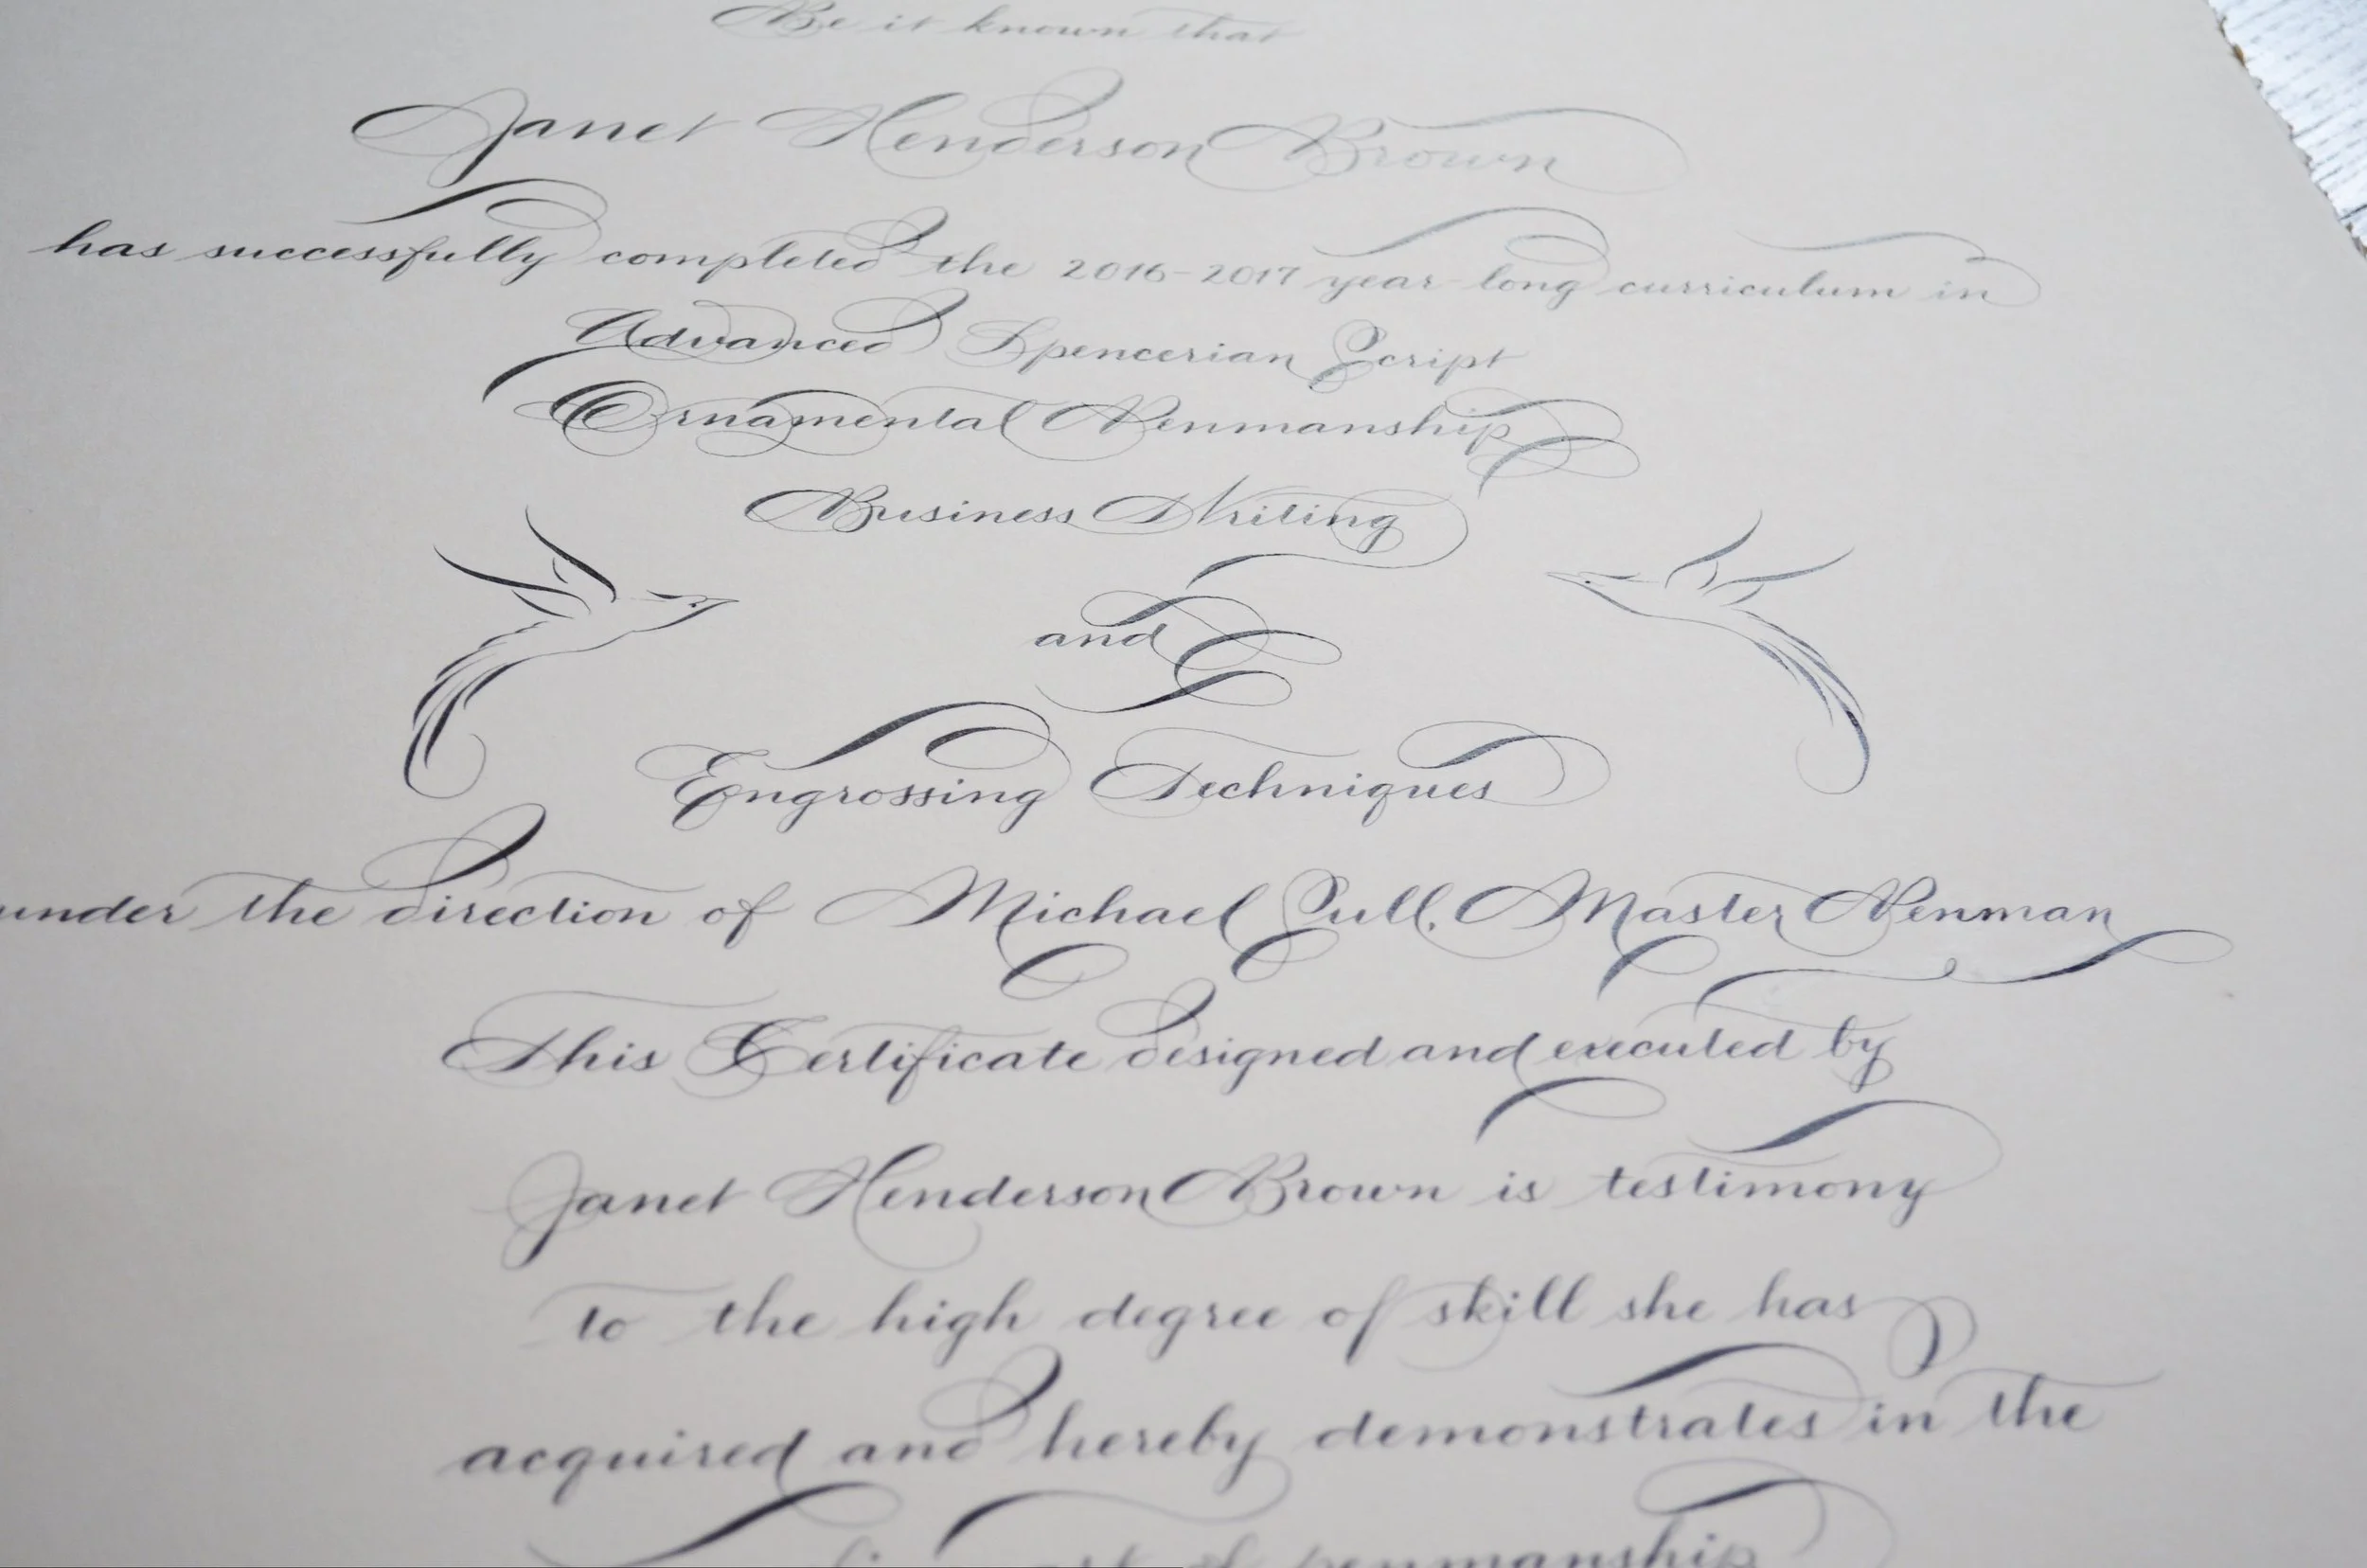 Be it known that
Janet Henderson Brown
has successfully completed the 2016-2017 year-long curriculum in
Advanced Spencerian Script
Ornamental Penmanship
Business Writing
and
Engrossing Techniques
under the direction of Michael Sull, Master Penman
This Certificate designed and executed by
Janet Henderson Brown is testimony
to the high degree of skill she has
acquired and hereby demonstrates in the
art of penmanship